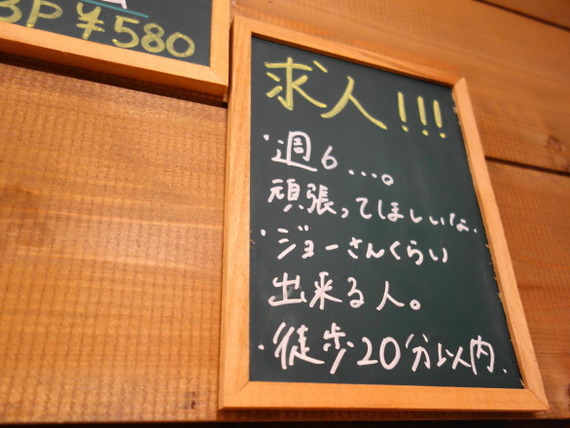 3P ¥580
求人!!!
・週6...。
頑張ってほしいな.
・ジョーさんくらい
出来る人。
・徒歩20分以内.